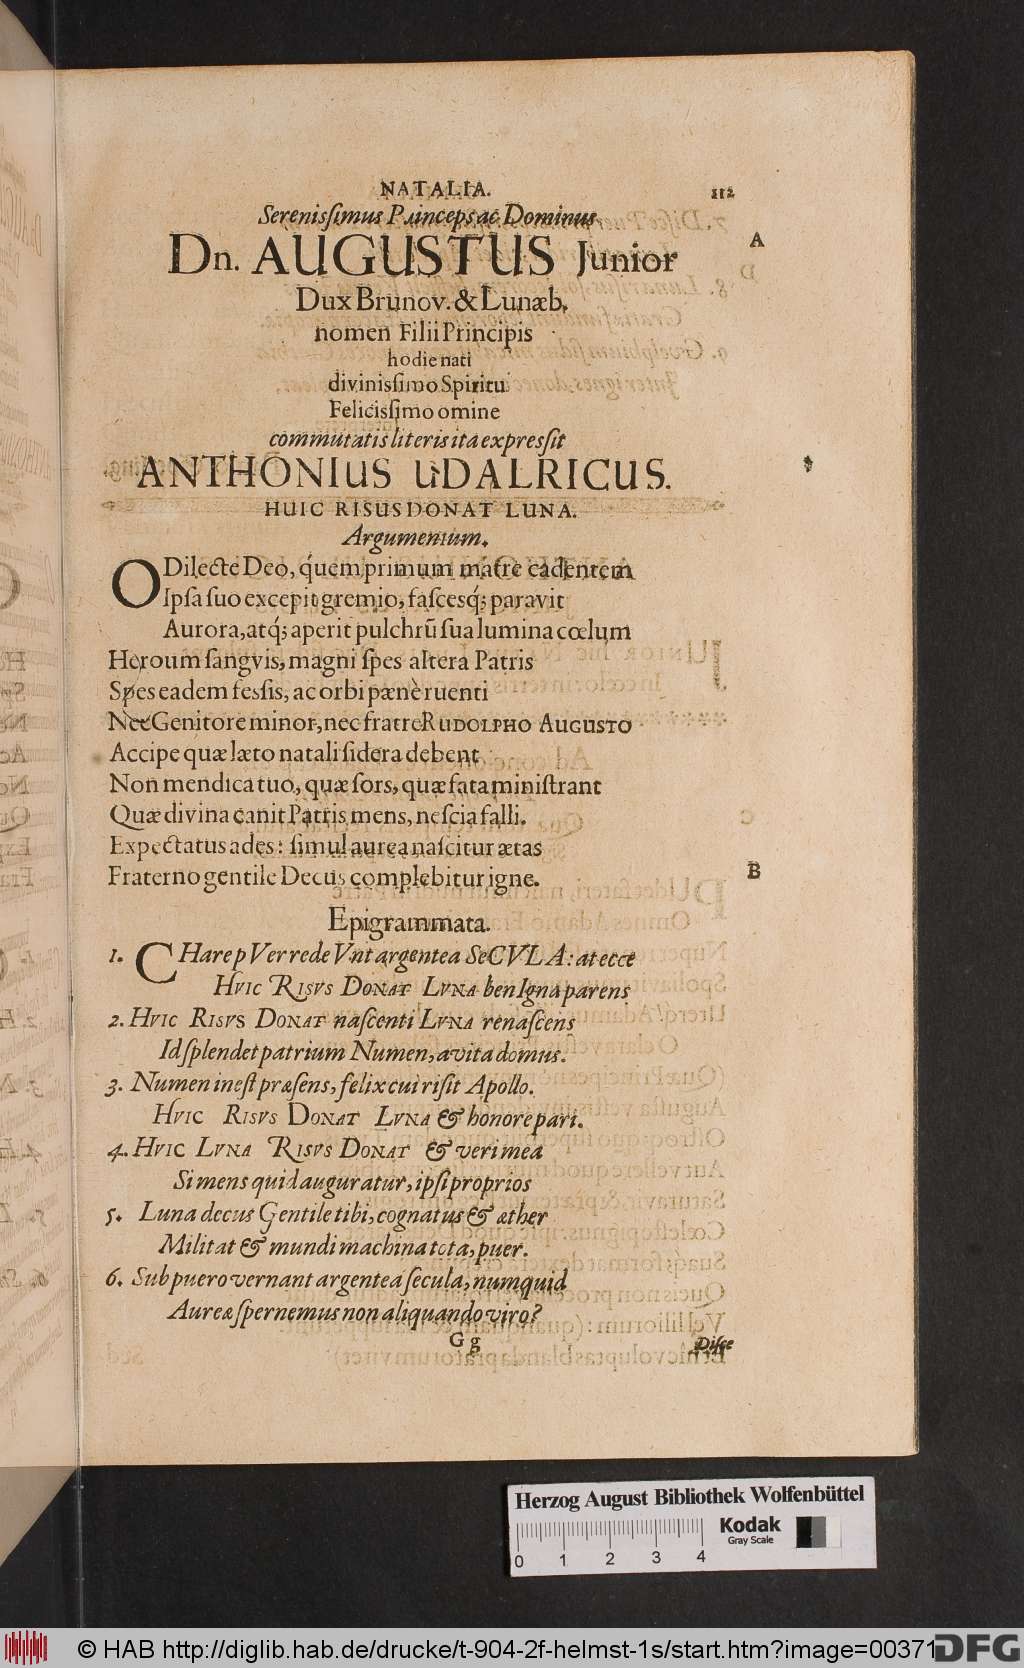 NATALIA. 112
Serenissimus Princeps ac Dominus
Dn. AUGUSTUS Junior
A
Dux Brunov. & Lunæb.
nomen Filii Principis
hodie nati
divinissimo Spiritu
Felicissimo omine
commutatis literis ita expressit
ANTHONIUS UDALRICUS.
HUIC RISUS DONAT LUNA.
Argumentum.
O Dilecte Deo, quem primum matre cadentem
Ipsa suo excepit gremio, fascesq́; paravit
Aurora, atq́; aperit pulchrū sua lumina cœlum
Heroum sangvis, magni spes altera Patris
Spes eadem fessis, ac orbi pænè ruenti
Nec Genitore minor, nec fratre RUDOLPHO AUGUSTO
Accipe quæ læto natali sidera debent
Non mendica tuo, quæ sors, quæ fata ministrant
Quæ divina canit Patris mens, nescia falli.
Expectatus ades: simul aurea nascitur ætas
Fraterno gentile Decus complebitur igne.
B
Epigrammata.
1. CHare pVer rede Vnt argentea SeCVLA: at ecce
HVIC RISVS DONAT LVNA benIgna parens
2. HVIC RISVS DONAT nascenti LVNA renascens
Id splendet patrium Numen, avita domus.
3. Numen inest præsens, felix cui risit Apollo.
HVIC RISVS DONAT LVNA & honore pari.
4. HVIC LVNA RISVS DONAT & veri mea
Si mens quid auguratur, ipsi proprios
5. Luna decus Gentile tibi, cognatus & æther
Militat & mundi machina tota, puer.
6. Sub puero vernant argentea secula, numquid
Aureæ spernemus non aliquando viro?
G g
Disce
Herzog August Bibliothek Wolfenbüttel
Kodak
Gray Scale
0 1 2 3 4
© HAB http://diglib.hab.de/drucke/t-904-2f-helmst-1s/start.htm?image=00371
DFG